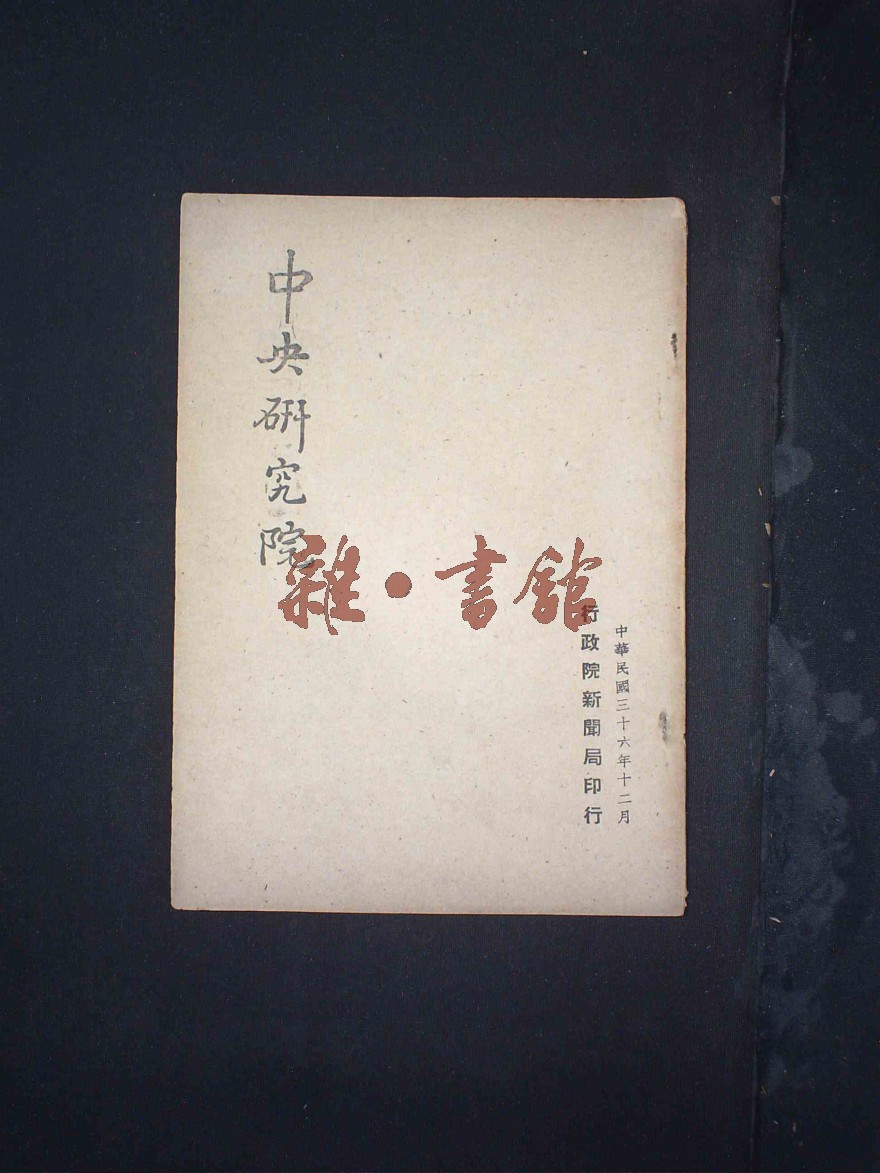 中華民國三十六年十二月
行政院新聞局印行
中央研究院
雜·書館